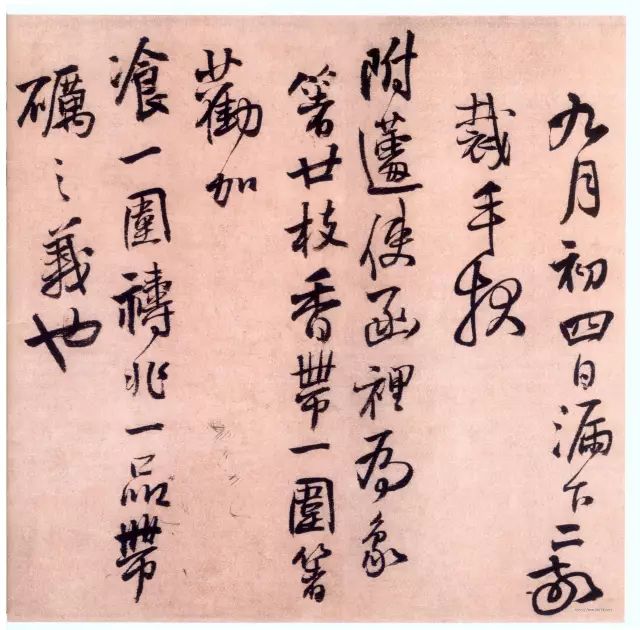 九月初四日漏下二鼓
裁手
附使函裡為象
箸廿枝香帶一圍箸
勸加
湌一圍禱兆一品帶
礪之義也